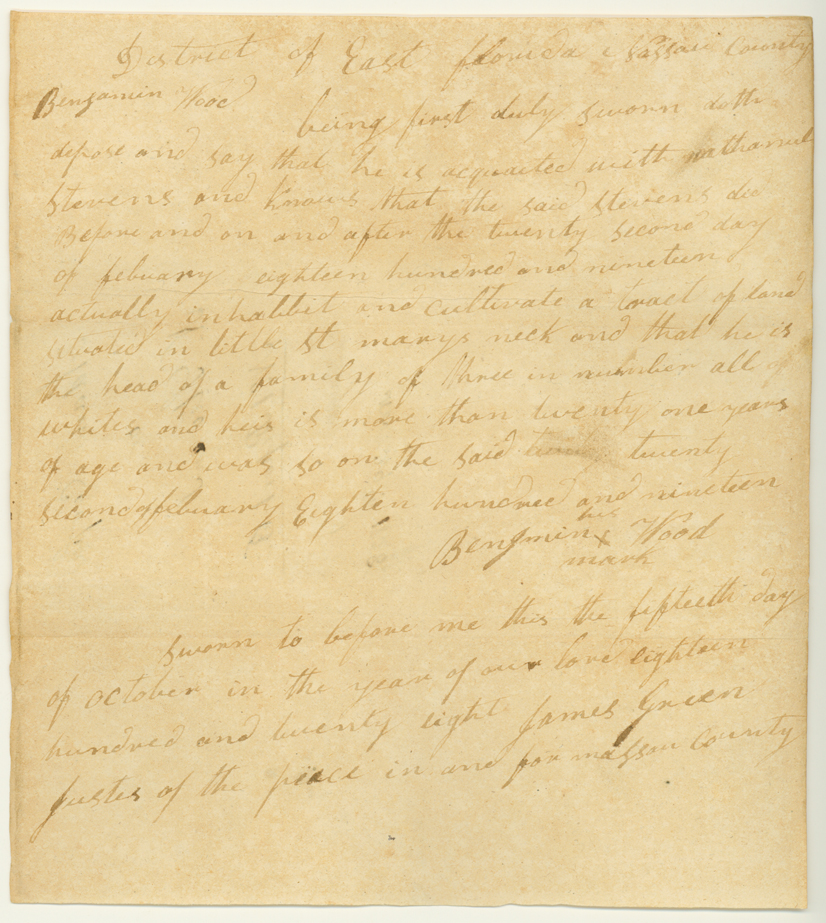 District of East florida Nassau County
Benjamin Wood being first duly sworn doth
depose and say that he is acquaited with nathaniel
Stevens and knows that the said Stevens did
Before and on and after the twenty second day
of febuary eighteen hundred and nineteen
actually inhabbit and cultivate a tract of land
situated in little St marys neck and that he is
the head of a family of three in number all of
whites and heis is more than twenty one years
of age and was so on the said twenty
second of febuary Eighten hundred and nineteen
his
Bengmin x Wood
mark
sworn to before me this the fifteeth day
of october in the year of our lord eighteen
hundred and twenty eight James Green
Justes of the peace in and for nassau County